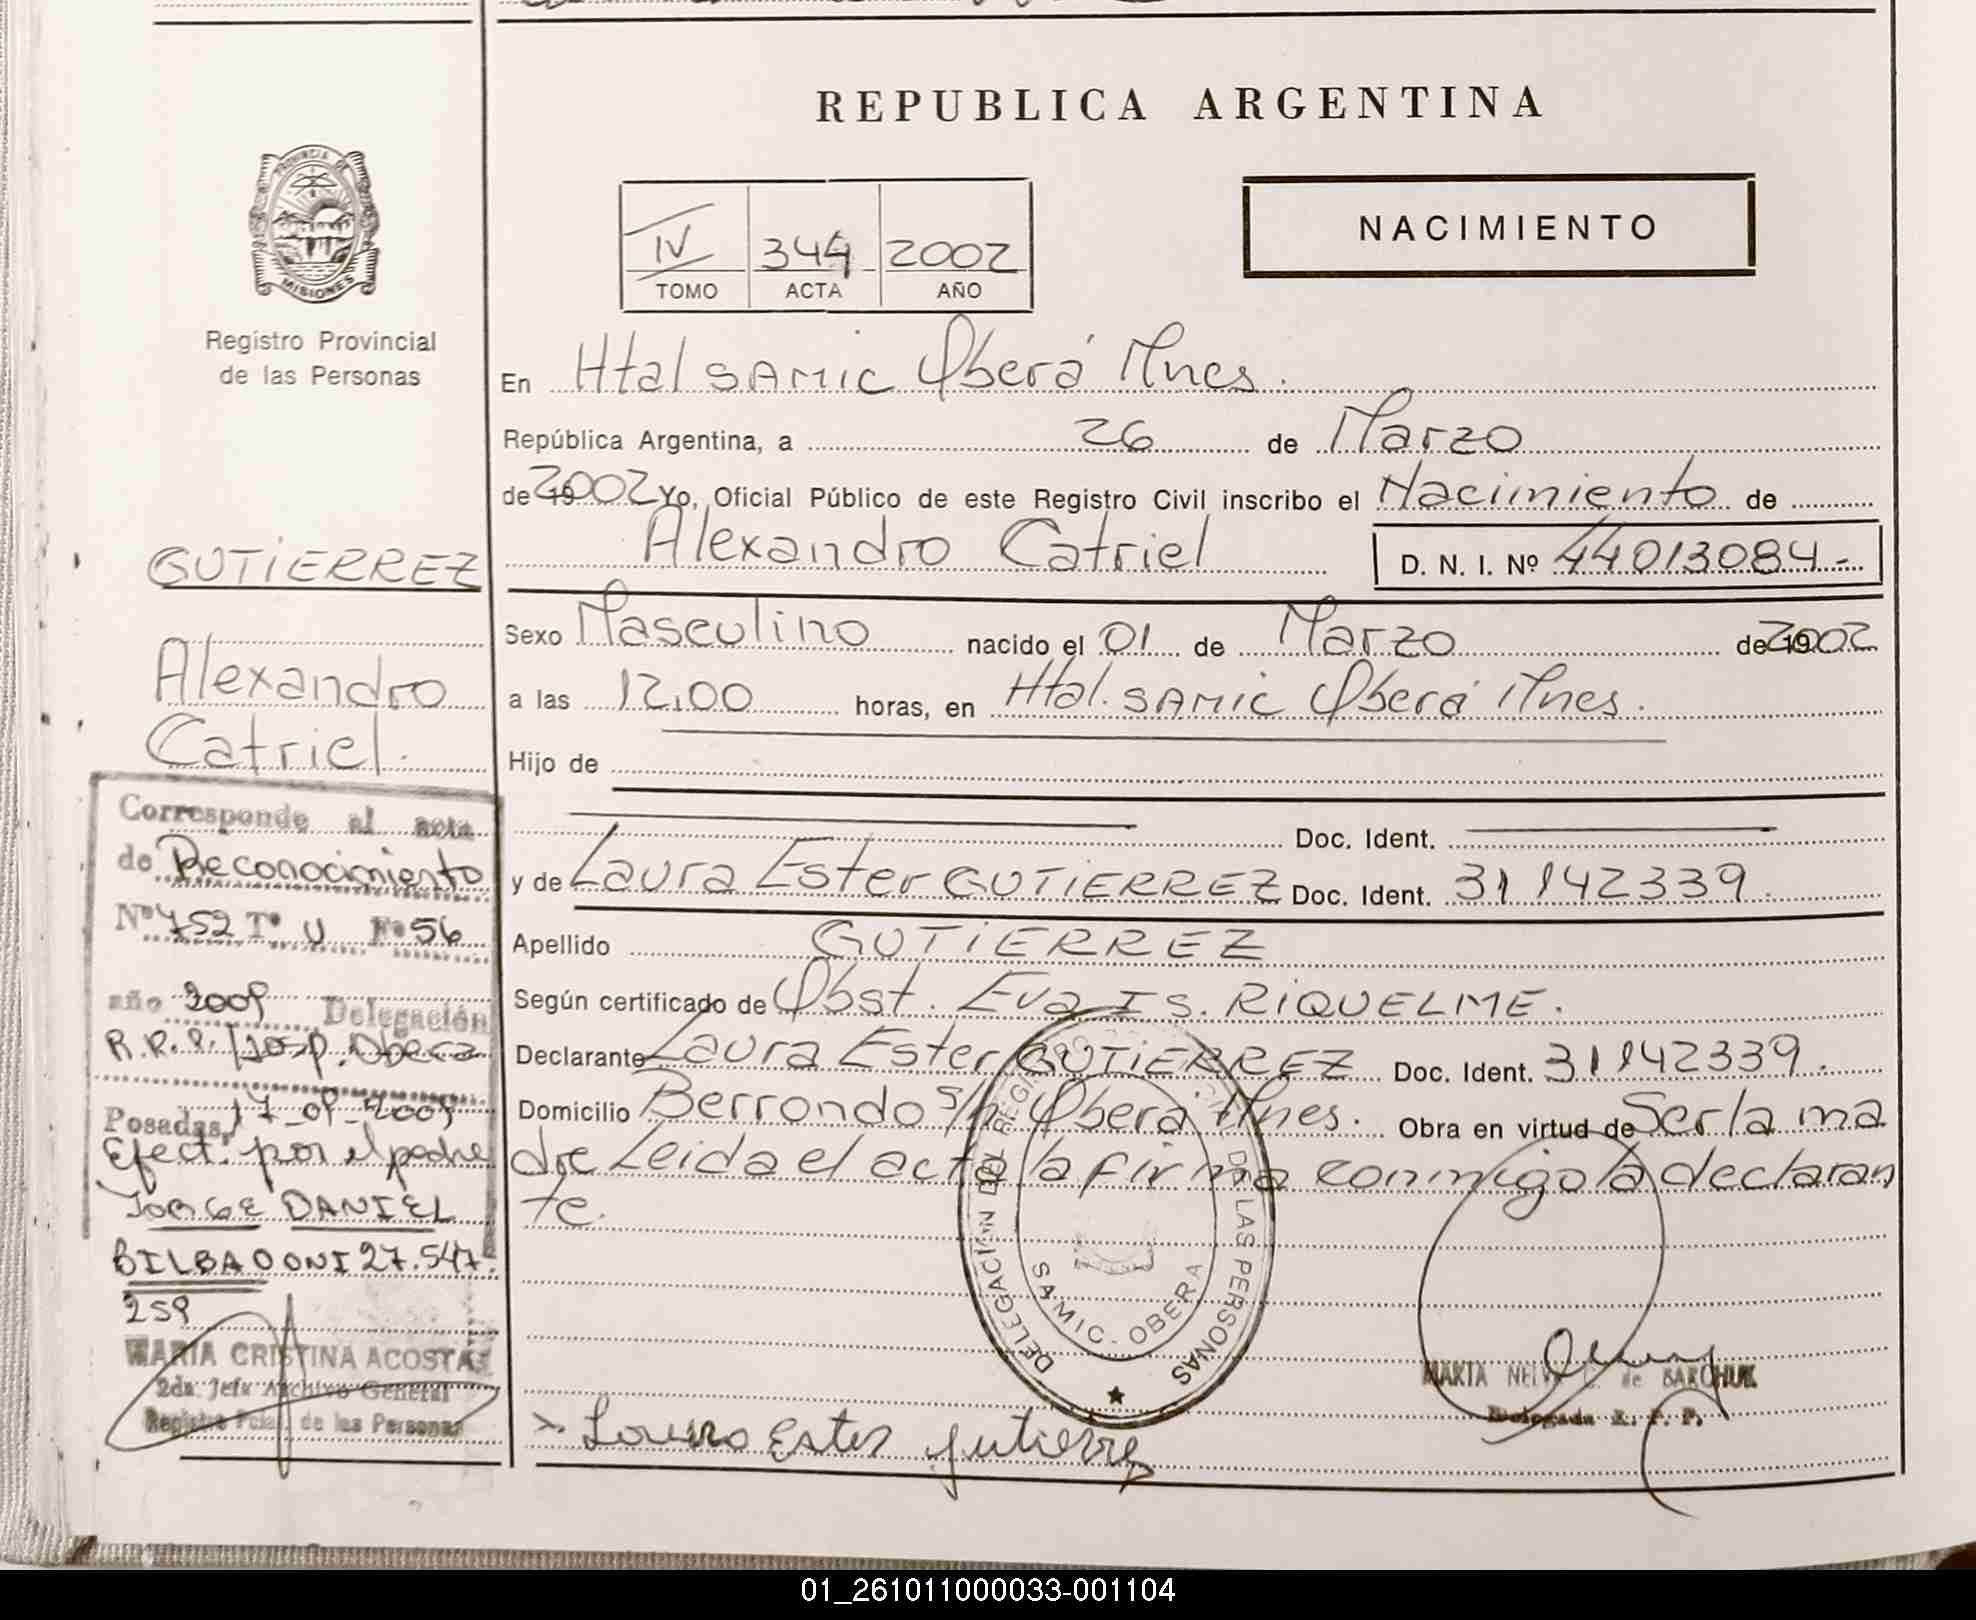 REPUBLICA ARGENTINA
NACIMIENTO
IV 344 2002
TOMO ACTA AÑO
PROVINCIA DE
MISIONES
Registro Provincial
de las Personas
GUTIERREZ
Alexandro
Catriel.
Corresponde al acta
de Reconocimiento
Nº 752 Tº U Fº 56
año 2009 Delegación
R.P.P. Hosp. Obera
Posadas, 17-09-2009
Efect. por el padre
JORGE DANIEL
BILBAO DNI 27.547.
259
MARIA CRISTINA ACOSTA
2da. Jefa Archivo General
Registro Pcial. de las Personas
En Htal SAMIC Oberá Mnes.
República Argentina, a 26 de Marzo
de 19 2002 Yo, Oficial Público de este Registro Civil inscribo el Nacimiento de
Alexandro Catriel D. N. I. Nº 44013084.-
Sexo Masculino nacido el 01 de Marzo de 19 2002
a las 12,00 horas, en Htal. SAMIC Oberá Mnes.
Hijo de
Doc. Ident.
y de Laura Ester GUTIERREZ Doc. Ident. 31142339.
Apellido GUTIERREZ
Según certificado de Obst. Eva Is. RIQUELME.
Declarante Laura Ester GUTIERREZ Doc. Ident. 31142339.
Domicilio Berrondo s/n Oberá Mnes. Obra en virtud de Ser la ma
dre Leida el acta la firma conmigo la declaran
te.
DELEGACIÓN DEL REGISTRO DE LAS PERSONAS
SAMIC - OBERA
MARIA NELVA de BARCHUK
Delegada R. P. P.
Laura Ester Gutierrez
01_261011000033-001104